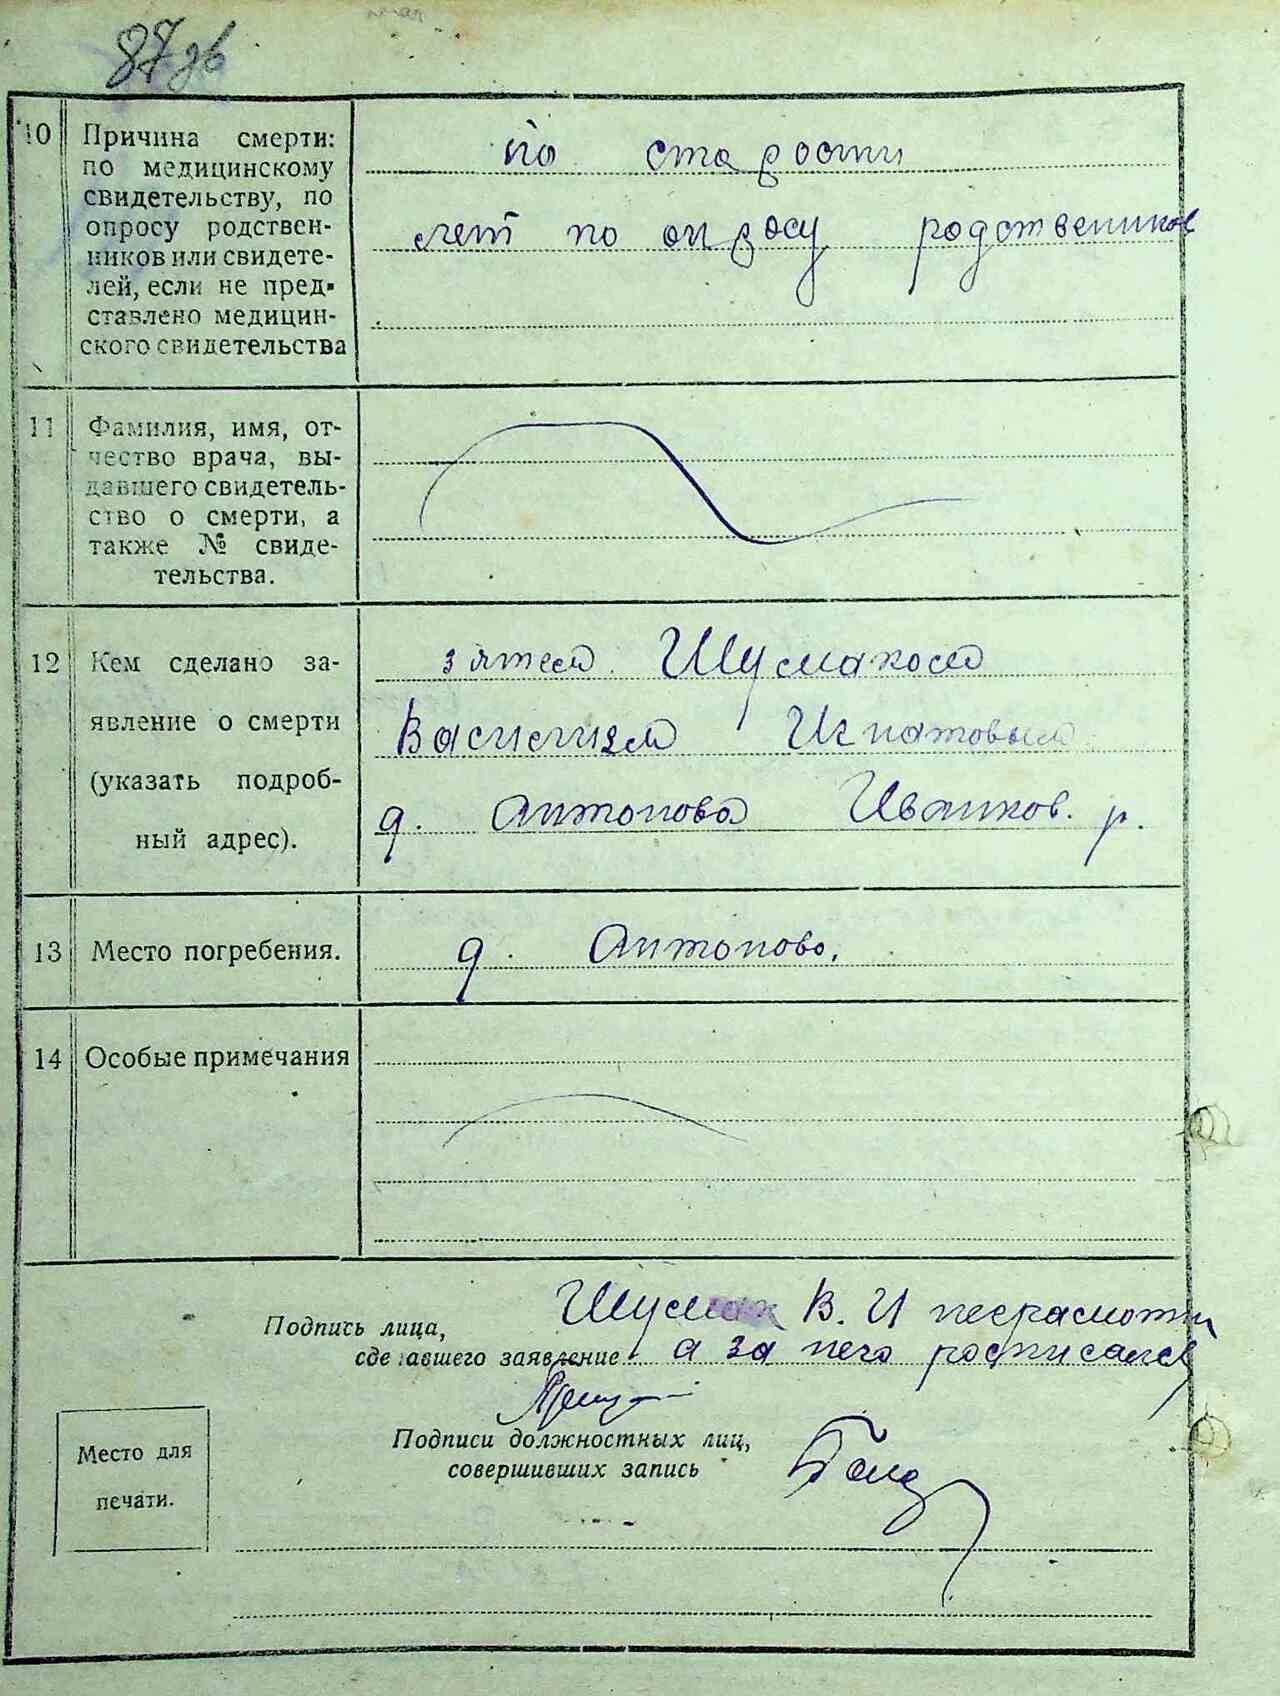 87 дв
10 Причина смерти:
по медицинскому
свидетельству, по
опросу родствен-
ников или свидете-
лей, если не пред-
ставлено медицин-
ского свидетельства
по старости
лет по опросу родствеников
11 Фамилия, имя, от-
чество врача, вы-
давшего свидетель-
ство о смерти, а
также № свиде-
тельства.
12 Кем сделано за-
явление о смерти
(указать подроб-
ный адрес).
зятем Шумаком
Василием Игнатовым
д. Антонова Иваников. р.
13 Место погребения.
д. Антоново.
14 Особые примечания
Подпись лица,
сделавшего заявление
Шумак В. И неграмотн
а за него росписался
Подписи должностных лиц,
совершивших запись
Место для
печати.